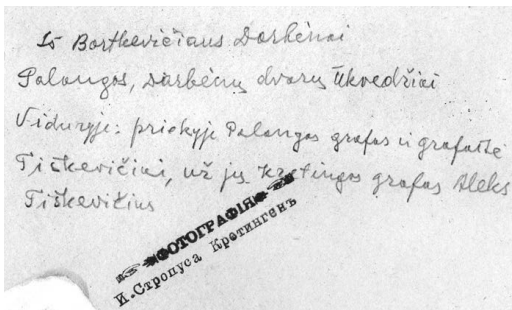 Iš Bortkevičiaus Darbėnai
Palangos, Darbėnų dvarų Ūkvedžiai
Viduryje: priekyje Palangos grafas ir grafaitė
Tiškevičiai, už jų Kretingos grafas Aleks
Tiškevičius
ФОТОГРАФІЯ
И.Стропуса Кретингенъ